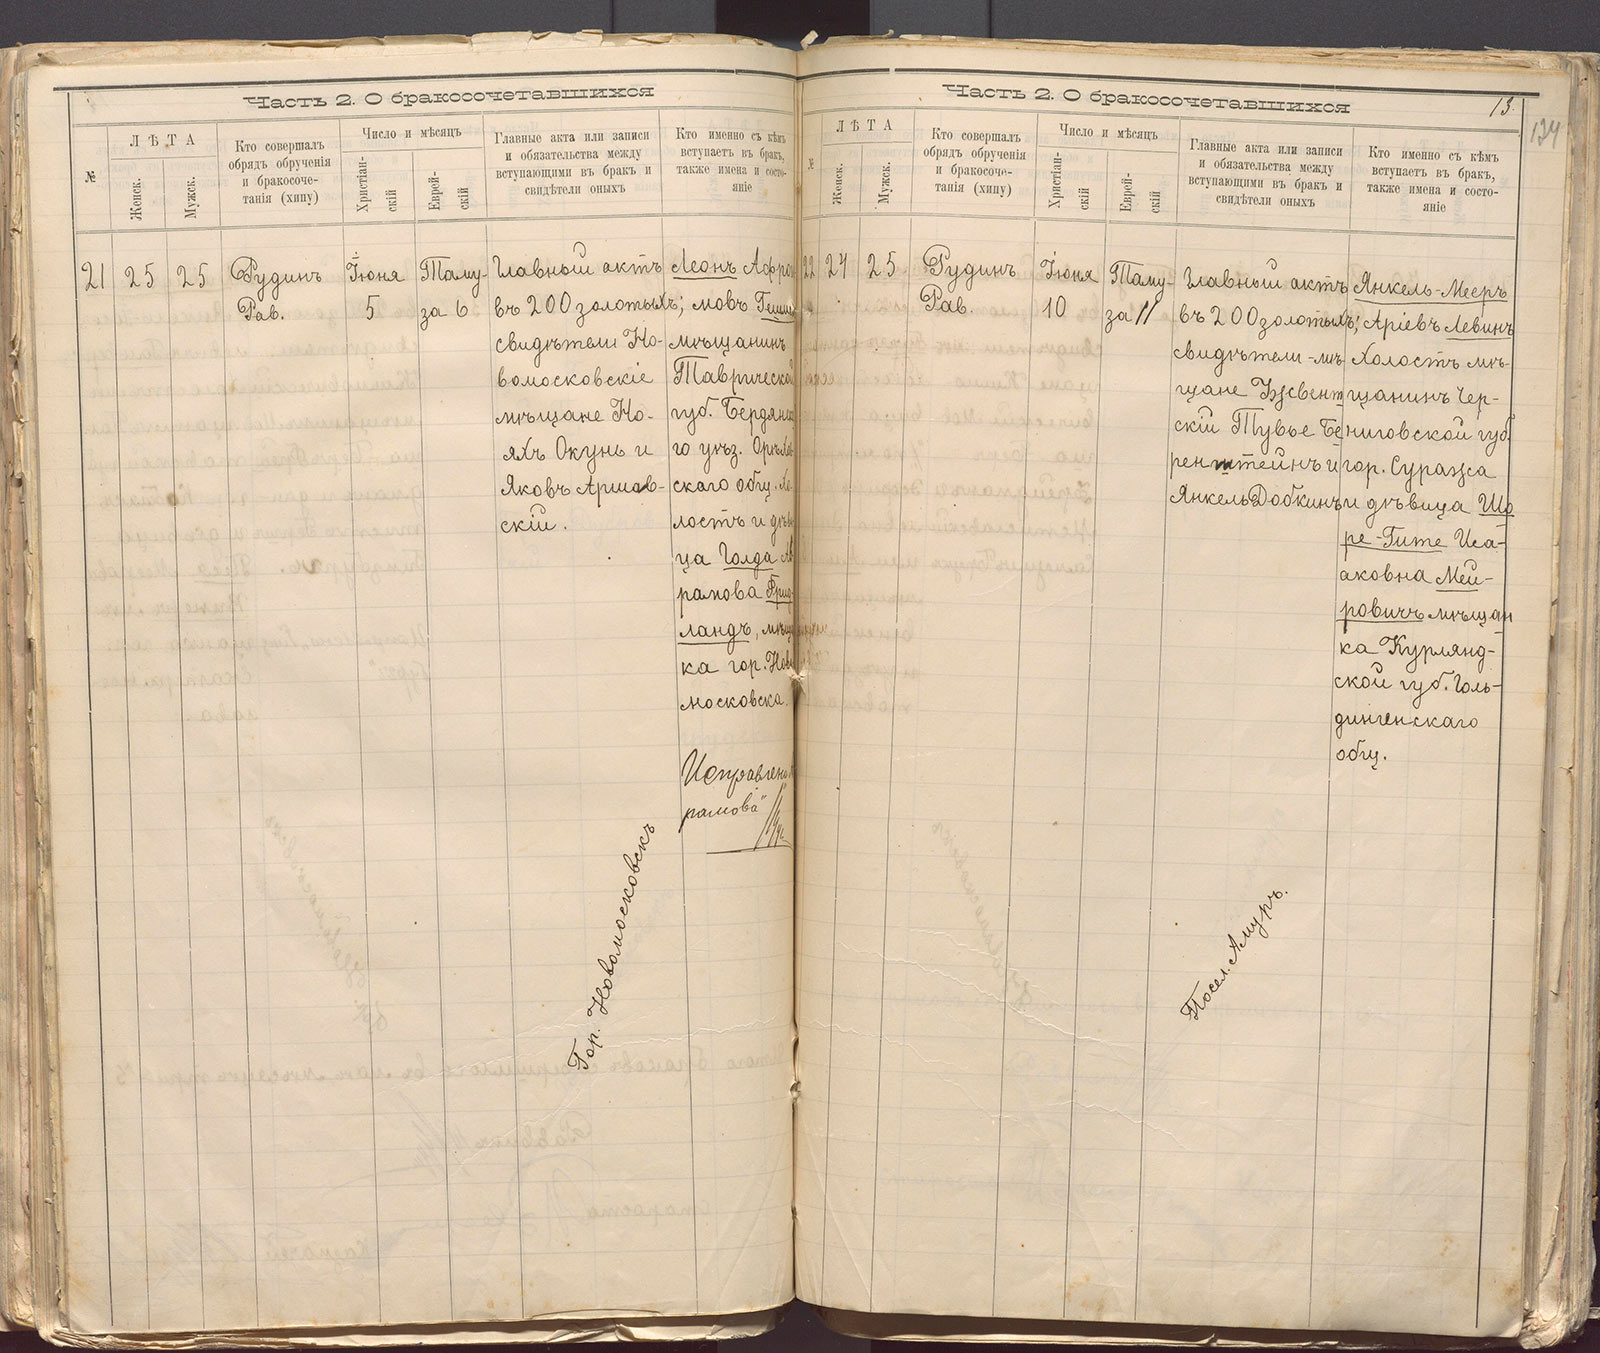 Часть 2. О бракосочетавшихся
№
ЛѢТА
Женск.
Мужск.
Кто совершалъ
обрядъ обрученія
и бракосоче-
танія (хипу)
Число и мѣсяцъ
Христіан-
скій
Еврей-
скій
Главные акта или записи
и обязательства между
вступающими въ бракъ и
свидѣтели оныхъ
Кто именно съ кѣмъ
вступаетъ въ бракъ,
также имена и состо-
яніе
21
25
25
Рудинъ
Рав.
Іюня
5
Таму-
за 6
Главный актъ
въ 200 золотыхъ;
свидѣтели Но-
вомосковскіе
мѣщане Но-
яхъ Окунь и
Яковъ Аршав-
скій.
Леонъ
мовъ
мѣщанинъ
Таврической
губ.
го уѣз.
скаго общ.
лостъ и
ца Голда
рамова
ландъ,
ка гор.
московска.
рамова"
Гор. Новомосковскъ
Часть 2. О бракосочетавшихся
13
134
№
ЛѢТА
Женск.
Мужск.
Кто совершалъ
обрядъ обрученія
и бракосоче-
танія (хипу)
Число и мѣсяцъ
Христіан-
скій
Еврей-
скій
Главные акта или записи
и обязательства между
вступающими въ бракъ и
свидѣтели оныхъ
Кто именно съ кѣмъ
вступаетъ въ бракъ,
также имена и состо-
яніе
22
24
25
Рудинъ
Рав.
Іюня
10
Таму-
за 11
Главный актъ
въ 200 золотыхъ;
свидѣтели - мѣ-
щане
скій Тувье Бе-
ренштейнъ и
Янкель Добкинъ
Янкель-Мееръ
Аріевъ Левинъ
холостъ мѣ-
щанинъ Чер-
ниговской губ.
гор. Суража
и дѣвица Шо
ре-Гите Иса-
аковна Мей-
ровичъ мѣщан
ка Курлянд-
ской губ. Голь-
дингенскаго
общ.
Посел. Амуръ.